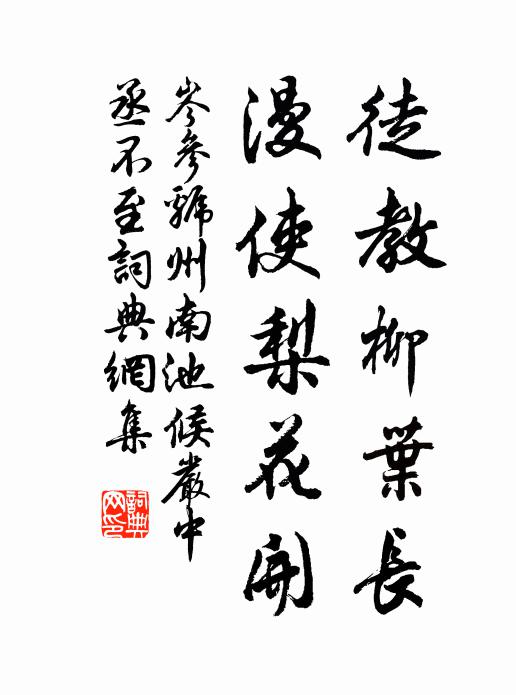 徒教柳葉長
漫使梨花開
岑參虢州南池候嚴中
丞不至詞典網集
詞典
网印